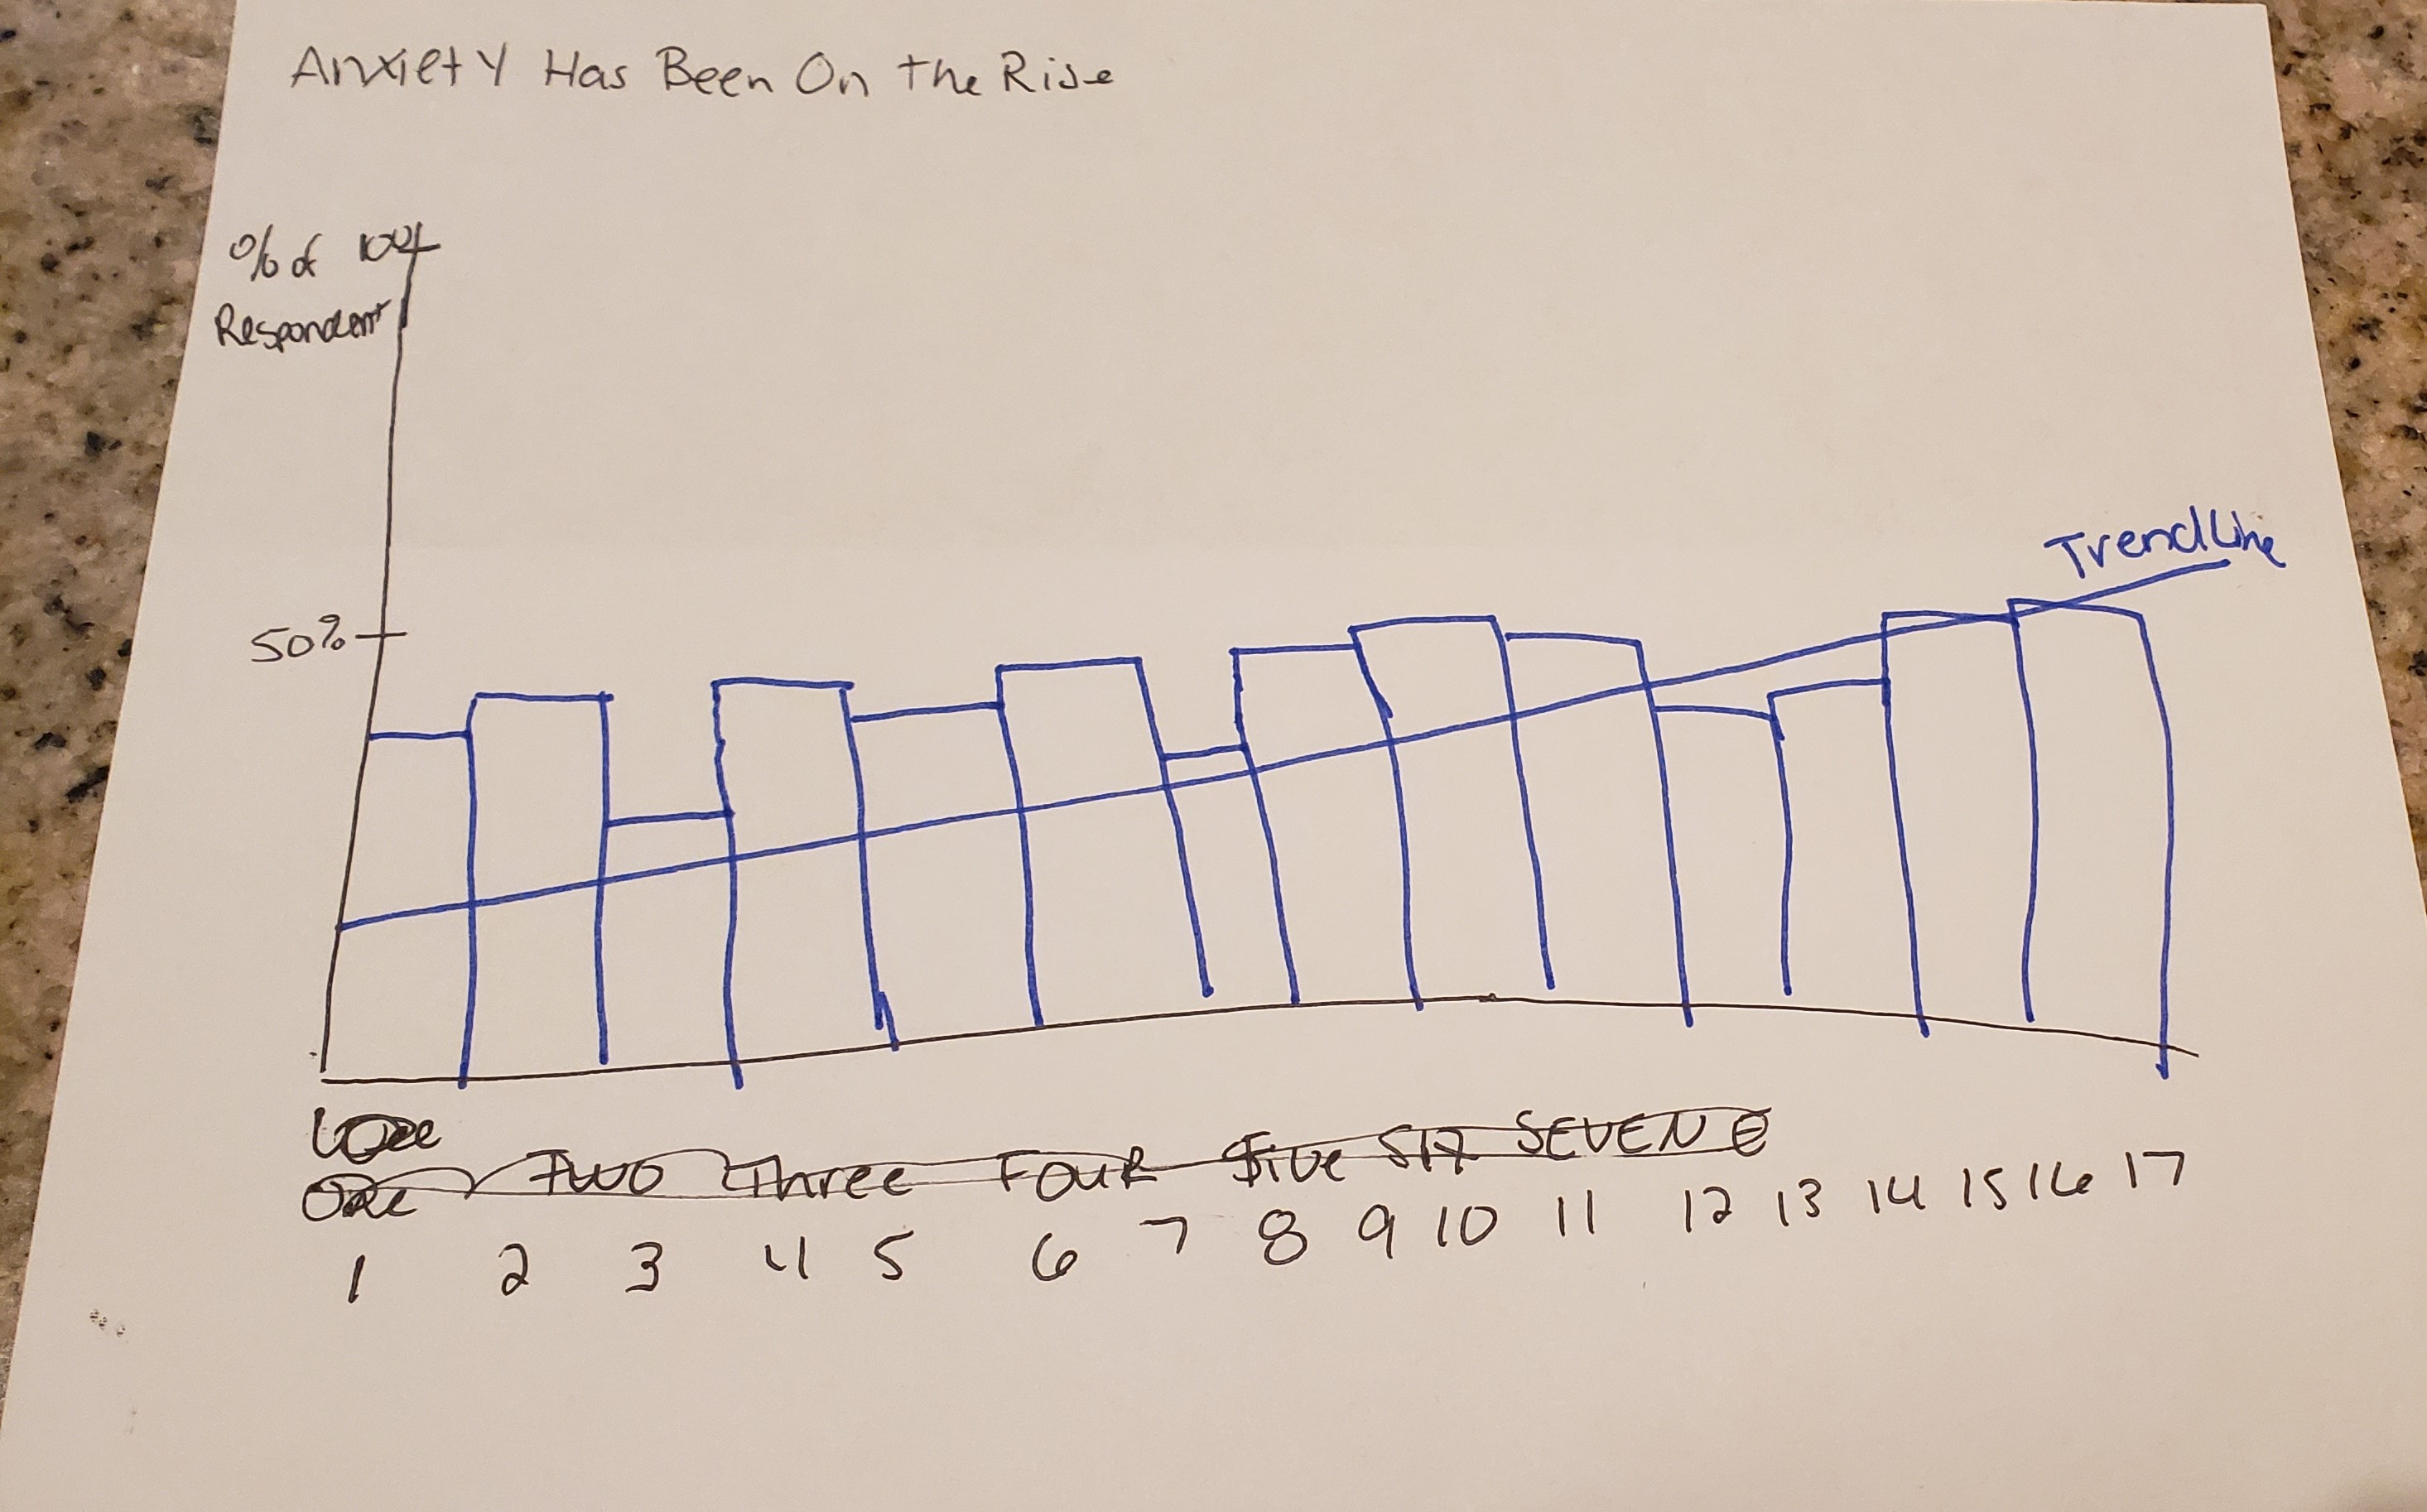 Anxiety Has Been On the Rise
% of 100%
Respondent
50%
Trendline
One
TWO Three FOUR Five SIX SEVEN
1 2 3 4 5 6 7 8 9 10 11 12 13 14 15 16 17